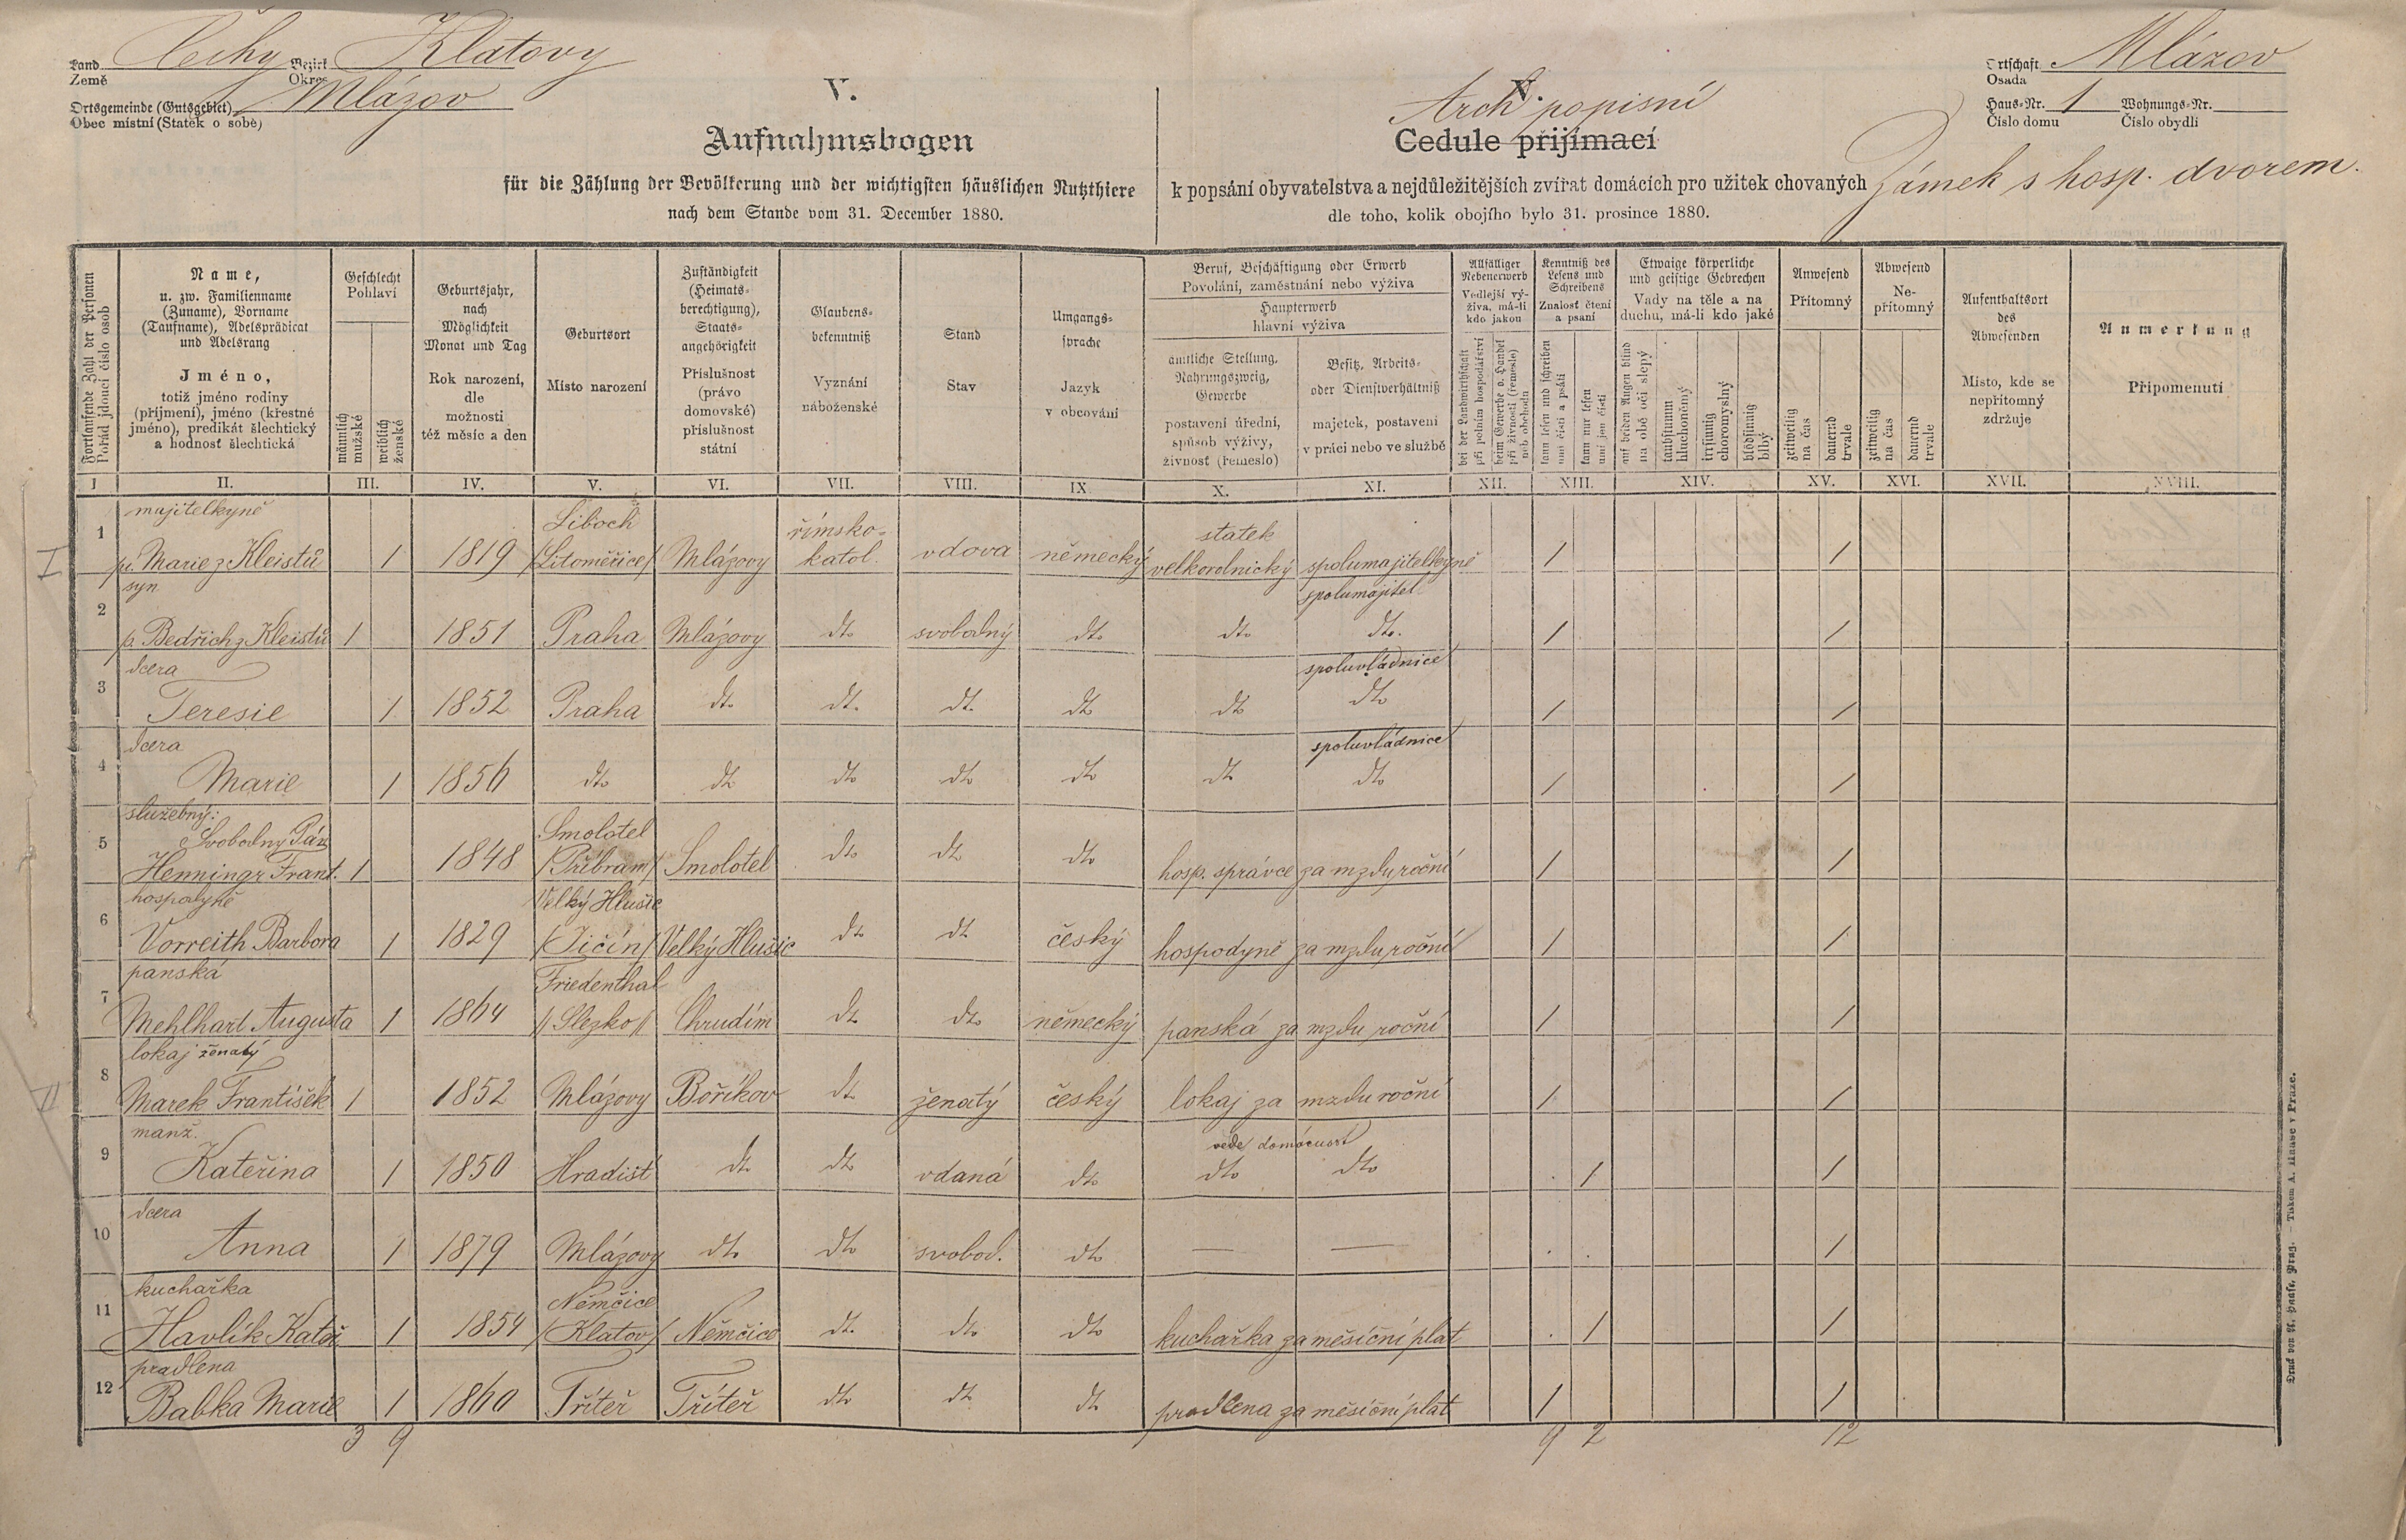 Land Čechy Bezirk Klatovy
Země Okres
Ortsgemeinde (Gutsgebiet) Mlázov
Obec místní (Statek o sobě)
V.
Aufnahmsbogen
für die Zählung der Bevölkerung und der wichtigsten häuslichen Nutzthiere
nach dem Stande vom 31. December 1880.
V.
Arch popisní
Cedule přijímací
k popsání obyvatelstva a nejdůležitějších zvířat domácích pro užitek chovaných
dle toho, kolik obojího bylo 31. prosince 1880.
Ortschaft Mlázov
Osada
Haus-Nr. 1 Wohnungs-Nr.
Číslo domu Číslo obydlí
Zámek s hosp. dvorem.
Fortlaufende Zahl der Personen
Pořád jdoucí číslo osob
Name,
u. zw. Familienname
(Zuname), Vorname
(Taufname), Adelsprädicat
und Adelsrang
Jméno,
totiž jméno rodiny
(příjmení), jméno (křestné
jméno), predikát šlechtický
a hodnosť šlechtická
Geschlecht
Pohlaví
männlich
mužské
weiblich
ženské
Geburtsjahr,
nach
Möglichkeit
Monat und Tag
Rok narození,
dle
možnosti
též měsíc a den
Geburtsort
Místo narození
Zuständigkeit
(Heimats-
berechtigung),
Staats-
angehörigkeit
Příslušnost
(právo
domovské)
příslušnost
státní
Glaubens-
bekenntniß
Vyznání
náboženské
Stand
Stav
Umgangs-
sprache
Jazyk
v obcování
Beruf, Beschäftigung oder Erwerb
Povolání, zaměstnání nebo výživa
Haupterwerb
hlavní výživa
ämtliche Stellung,
Nahrungszweig,
Gewerbe
postavení úřední,
spůsob výživy,
živnosť (řemeslo)
Besitz, Arbeits-
oder Dienstverhältniß
majetek, postavení
v práci nebo ve službě
Allfälliger
Nebenerwerb
Vedlejší vý-
živa, má-li
kdo jakou
bei der Landwirthschaft
při polním hospodářství
beim Gewerbe o. Handel
při živnosti (řemesle)
neb obchodu
Kenntniß des
Lesens und
Schreibens
Znalosť čtení
a psaní
kann lesen und schreiben
umí čísti a psáti
kann nur lesen
umí jen čísti
Etwaige körperliche
und geistige Gebrechen
Vady na těle a na
duchu, má-li kdo jaké
auf beiden Augen blind
na obě oči slepý
taubstumm
hluchoněmý
irrsinnig
choromyslný
blödsinnig
blbý
Anwesend
Přítomný
zeitweilig
na čas
dauernd
trvale
Abwesend
Ne-
přítomný
zeitweilig
na čas
dauernd
trvale
Aufenthaltsort
des
Abwesenden
Místo, kde se
nepřítomný
zdržuje
Anmerkung
Připomenutí
I II. III. IV. V. VI. VII. VIII. IX. X. XI. XII. XIII. XIV. XV. XVI. XVII. XVIII.
majitelkyně Liboch římsko- statek
I 1 pí. Marie z Kleistů 1 1819 /Litoměřice/ Mlázovy katol. vdova německý velkorolnický spolumajitelkyně 1 1
syn spolumajitel
2 p. Bedřich z Kleistů 1 1851 Praha Mlázovy dto svobodný dto dto dto. 1 1
dcera spoluvládnice
3 Teresie 1 1852 Praha dt. dt. dt. dt dt dto 1 1
dcera spoluvládnice
4 Marie 1 1856 dto dt dto dto dto dt dto 1 1
služebný: Smolotel
Svobodný Pán
5 Henningr Frant. 1 1848 /Příbram/ Smolotel dto dt dto hosp. správce za mzdu roční 1 1
hospodyně Velký Hlušic
6 Vorreith Barbora 1 1829 /Jičín/ Velký Hlušic dt dt český hospodyně za mzdu roční 1 1
panská Friedenthal
7 Mehlhart Augusta 1 1864 //Slezko// Chrudim dt dto německý panská za mzdu roční 1 1
lokaj ženatý
II 8 Marek František 1 1852 Mlázovy Boříkov dt ženatý český lokaj za mzdu roční 1 1
manž. vede domácnosť
9 Kateřina 1 1850 Hradišť dt dto vdaná dto dto dto 1 1
dcera
10 Anna 1 1879 Mlázovy dto dto svobod. dto — — 1
kuchařka Němčice
11 Havlík Kateř 1 1854 /Klatov/ Němčice dt. dto dto kuchařka za měsíční plat 1 1
pradlena
12 Babka Marie 1 1860 Tříteř Tříteř dto dt dt pradlena za měsíční plat 1 1
3 9 9 2 12
Druck von A. Haase, Prag. — Tiskem A. Haase v Praze.